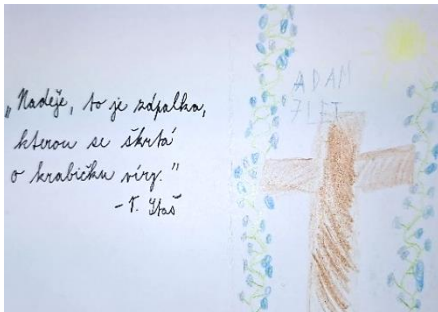 „Naděje, to je zápalka,
kterou se škrtá
o krabičku víry."
ADAM
7 LET